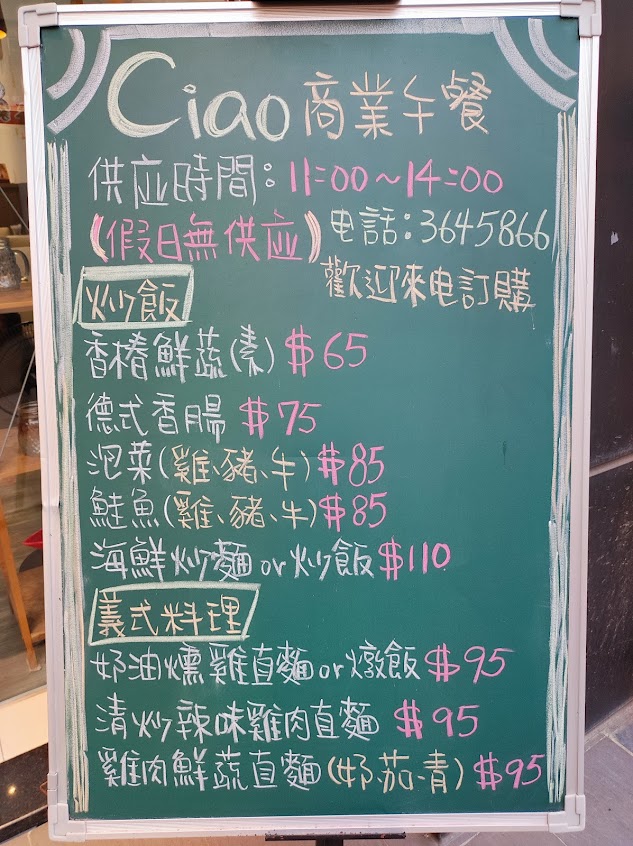 Ciao 商業午餐
供应時間：11:00～14:00
(假日無供应) 电話：3645866
歡迎來电訂購
炒飯
香椿鮮蔬(素) $65
德式香腸 $75
泡菜(雞、豬、牛) $85
鮭魚(雞、豬、牛) $85
海鮮炒麵or炒飯 $110
義式料理
奶油燻雞直麵or燉飯 $95
清炒辣味雞肉直麵 $95
雞肉鮮蔬直麵(奶.茄.青) $95